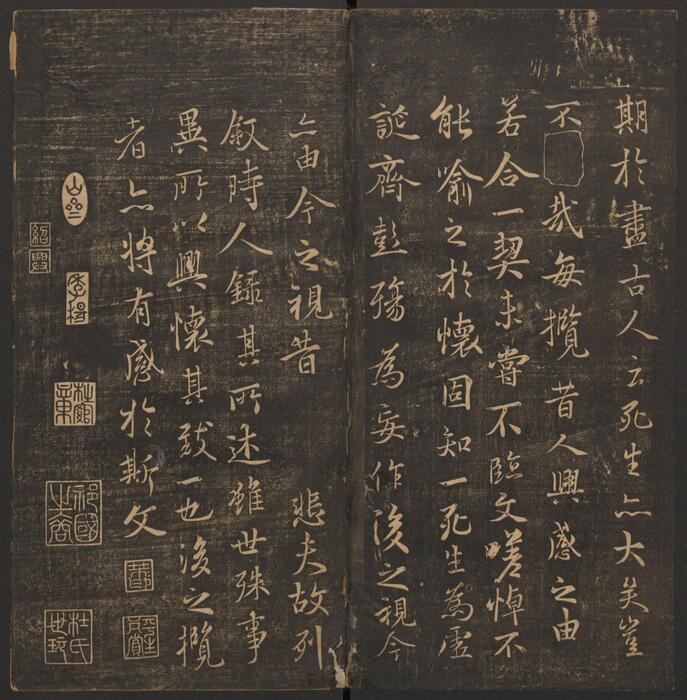 期於盡古人云死生亦大矣豈
不哉每攬昔人興感之由
若合一契未嘗不臨文嗟悼不
能喻之於懷固知一死生為虛
誕齊彭殤為妄作後之視今
亦由今之視昔 悲夫故列
叙時人錄其所述雖世殊事
異所以興懷其致一也後之攬
者亦將有感於斯文
紹興
祁國之裔